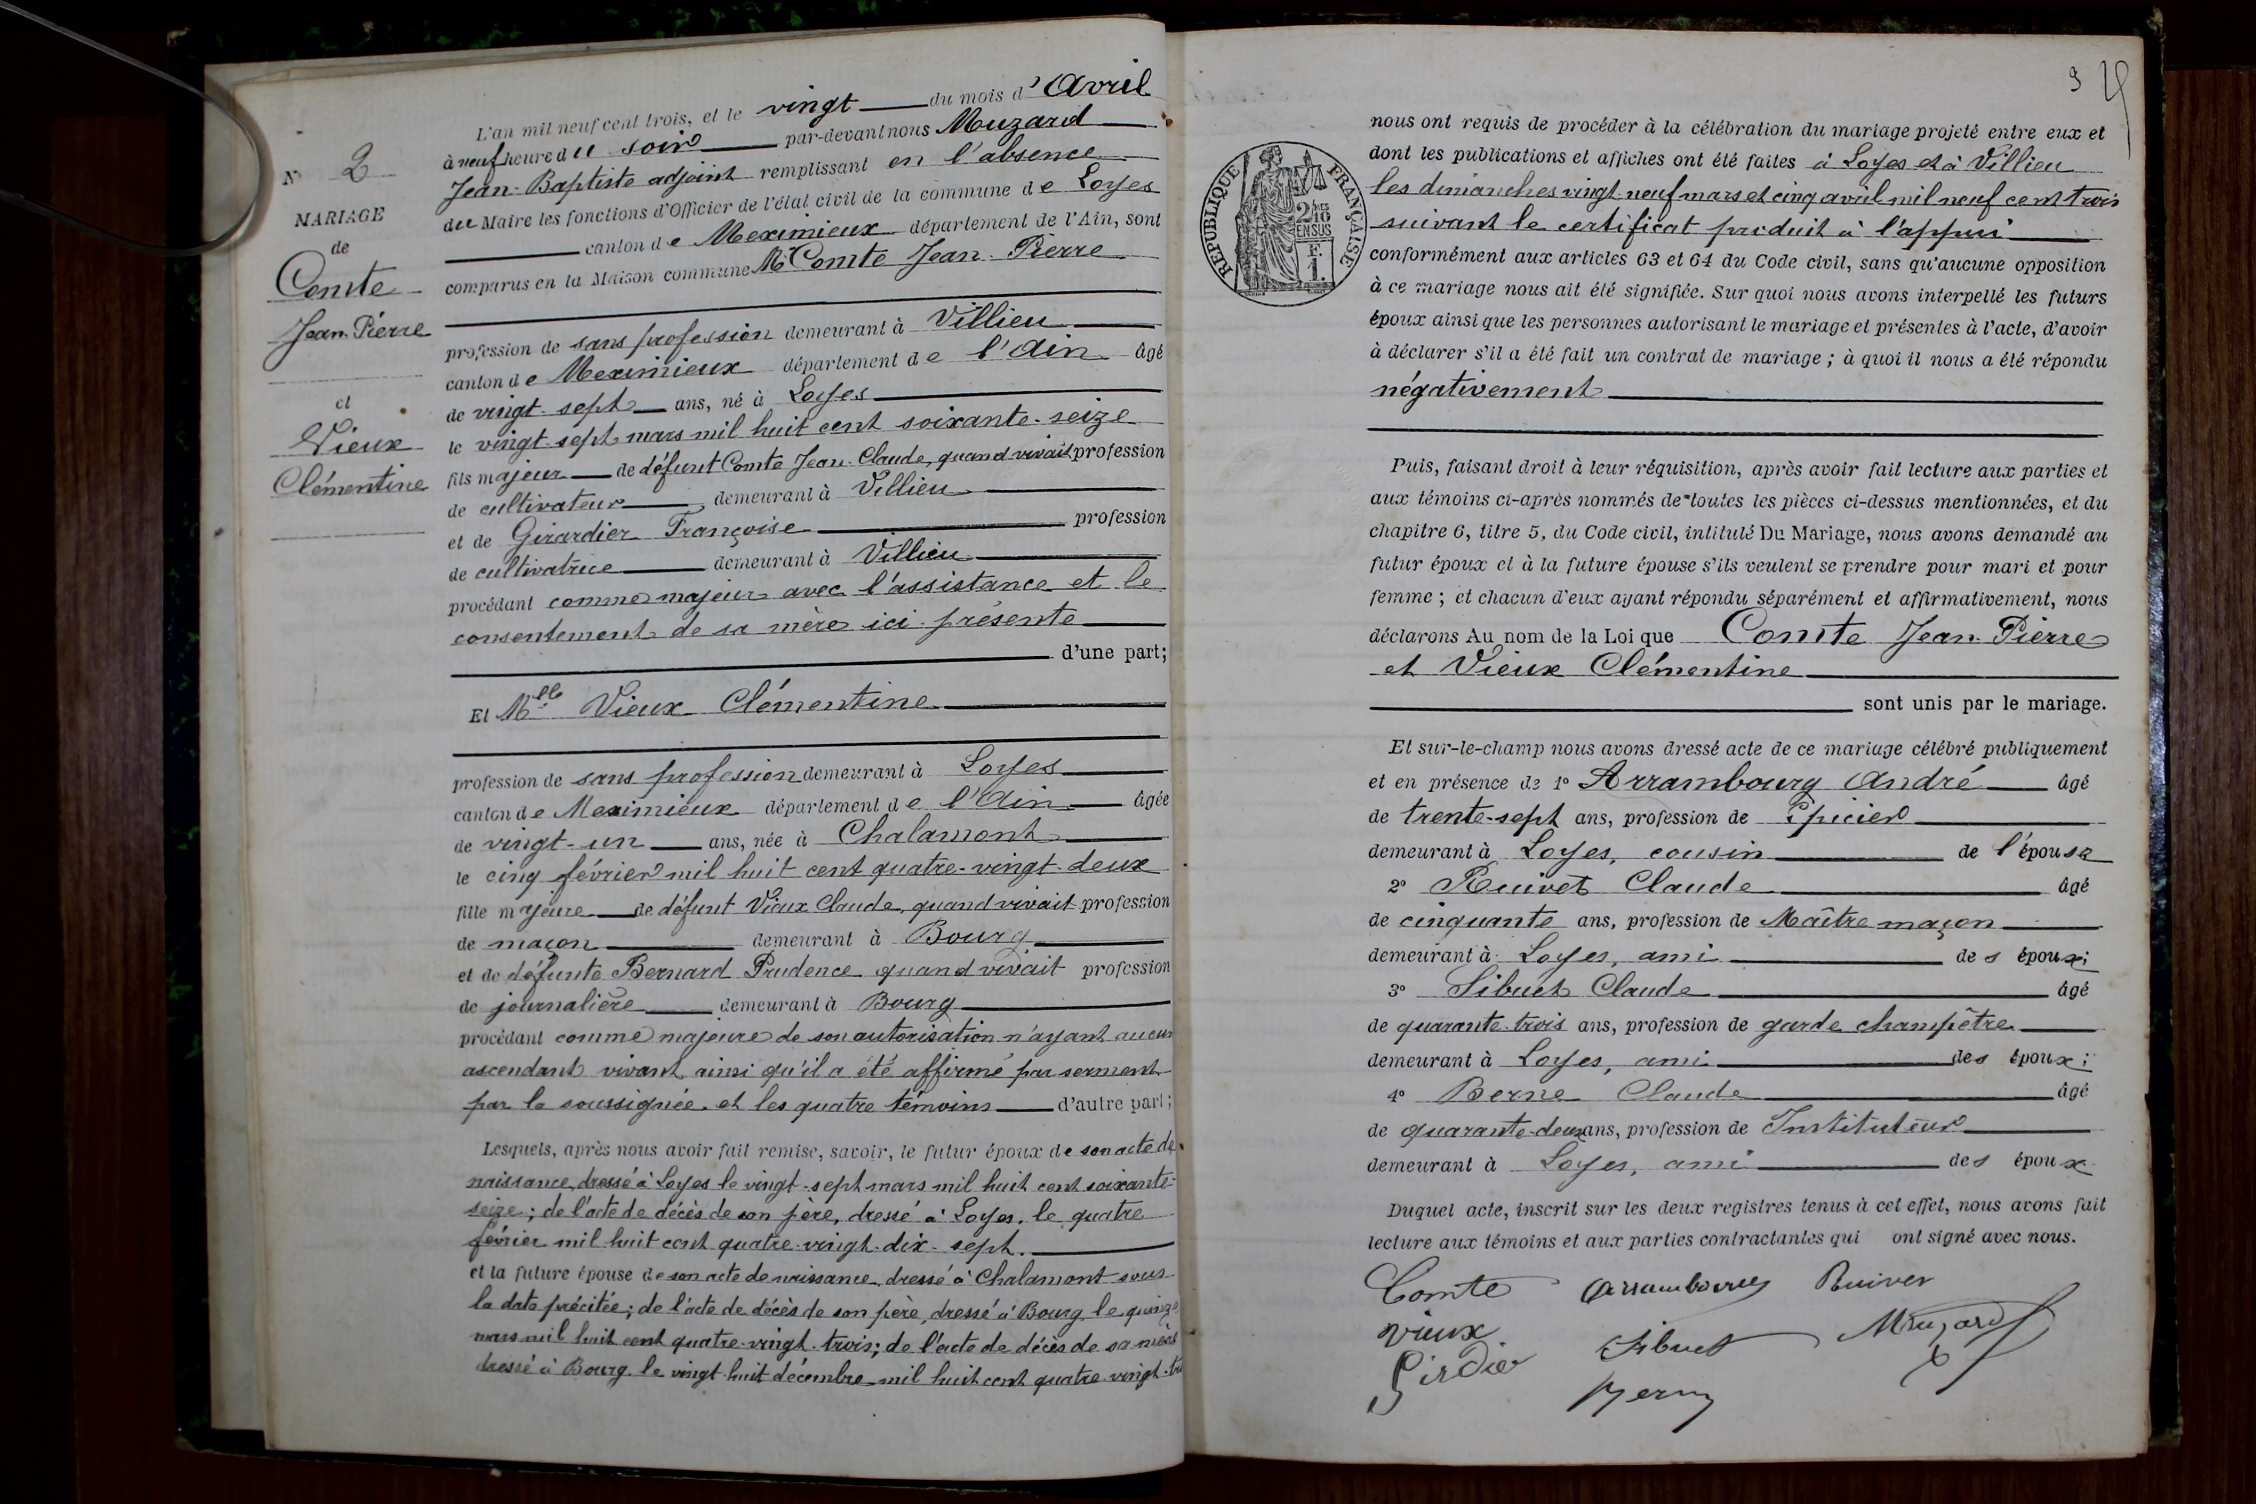 L'an mil neuf cent trois, et le vingt du mois d'Avril
à neuf heure du soir par-devant nous Muzard
Jean-Baptiste adjoint remplissant en l'absence
du Maire les fonctions d'Officier de l'état civil de la commune de Loyes
canton de Meximieux département de l'Ain, sont
comparus en la Maison commune Mr Comte Jean-Pierre
profession de sans profession demeurant à Villieu
canton de Meximieux département de l'Ain âgé
de vingt-sept ans, né à Loyes
le vingt-sept mars mil huit cent soixante-seize
fils majeur de défunt Comte Jean-Claude, quand vivait profession
de cultivateur demeurant à Villieu
et de Girardier Françoise profession
de cultivatrice demeurant à Villieu
procédant comme majeur avec l'assistance et le
consentement de sa mère ici présente
d'une part;
Et Mlle Vieux Clémentine
profession de sans profession demeurant à Loyes
canton de Meximieux département de l'Ain âgée
de vingt-un ans, née à Chalamont
le cinq février mil huit cent quatre-vingt-deux
fille majeure de défunt Vieux Claude, quand vivait profession
de maçon demeurant à Bourg
et de défunte Bernard Prudence quand vivait profession
de journalière demeurant à Bourg
procédant comme majeure de son autorisation n'ayant aucun
ascendant vivant ainsi qu'il a été affirmé par serment
par la soussignée et les quatre témoins d'autre part;
Lesquels, après nous avoir fait remise, savoir, le futur époux de son acte de
naissance, dressé à Loyes le vingt-sept mars mil huit cent soixante-
seize; de l'acte de décès de son père, dressé à Loyes, le quatre
février mil huit cent quatre-vingt-dix-sept.
et la future épouse de son acte de naissance, dressé à Chalamont sous
la date précitée; de l'acte de décès de son père, dressé à Bourg le quinze
mars mil huit cent quatre-vingt-trois; de l'acte de décès de sa mère
dressé à Bourg le vingt-huit décembre mil huit cent quatre-vingt-
N° 2
MARIAGE
de
Comte
Jean-Pierre
et
Vieux
Clémentine
9
RÉPUBLIQUE FRANÇAISE
2/10 EN SUS
F.
1.
nous ont requis de procéder à la célébration du mariage projeté entre eux et
dont les publications et affiches ont été faites à Loyes et à Villieu
les dimanches vingt-neuf mars et cinq avril mil neuf cent trois
suivant le certificat produit à l'appui
conformément aux articles 63 et 64 du Code civil, sans qu'aucune opposition
à ce mariage nous ait été signifiée. Sur quoi nous avons interpellé les futurs
époux ainsi que les personnes autorisant le mariage et présentes à l'acte, d'avoir
à déclarer s'il a été fait un contrat de mariage; à quoi il nous a été répondu
négativement
Puis, faisant droit à leur réquisition, après avoir fait lecture aux parties et
aux témoins ci-après nommés de toutes les pièces ci-dessus mentionnées, et du
chapitre 6, titre 5, du Code civil, intitulé Du Mariage, nous avons demandé au
futur époux et à la future épouse s'ils veulent se prendre pour mari et pour
femme; et chacun d'eux ayant répondu séparément et affirmativement, nous
déclarons Au nom de la Loi que Comte Jean-Pierre
et Vieux Clémentine
sont unis par le mariage.
Et sur-le-champ nous avons dressé acte de ce mariage célébré publiquement
et en présence de 1° Arrambourg André âgé
de trente-sept ans, profession de Epicier
demeurant à Loyes, cousin de l'épouse
2° Ruivet Claude âgé
de cinquante ans, profession de Maître maçon
demeurant à Loyes, ami des époux;
3° Sibuet Claude âgé
de quarante-trois ans, profession de garde champêtre
demeurant à Loyes, ami des époux;
4° Berne Claude âgé
de quarante-deux ans, profession de Instituteur
demeurant à Loyes, ami des époux
Duquel acte, inscrit sur les deux registres tenus à cet effet, nous avons fait
lecture aux témoins et aux parties contractantes qui ont signé avec nous.
Comte Arrambourg Ruivet
Vieux Sibuet Muzard
Girdier Berne